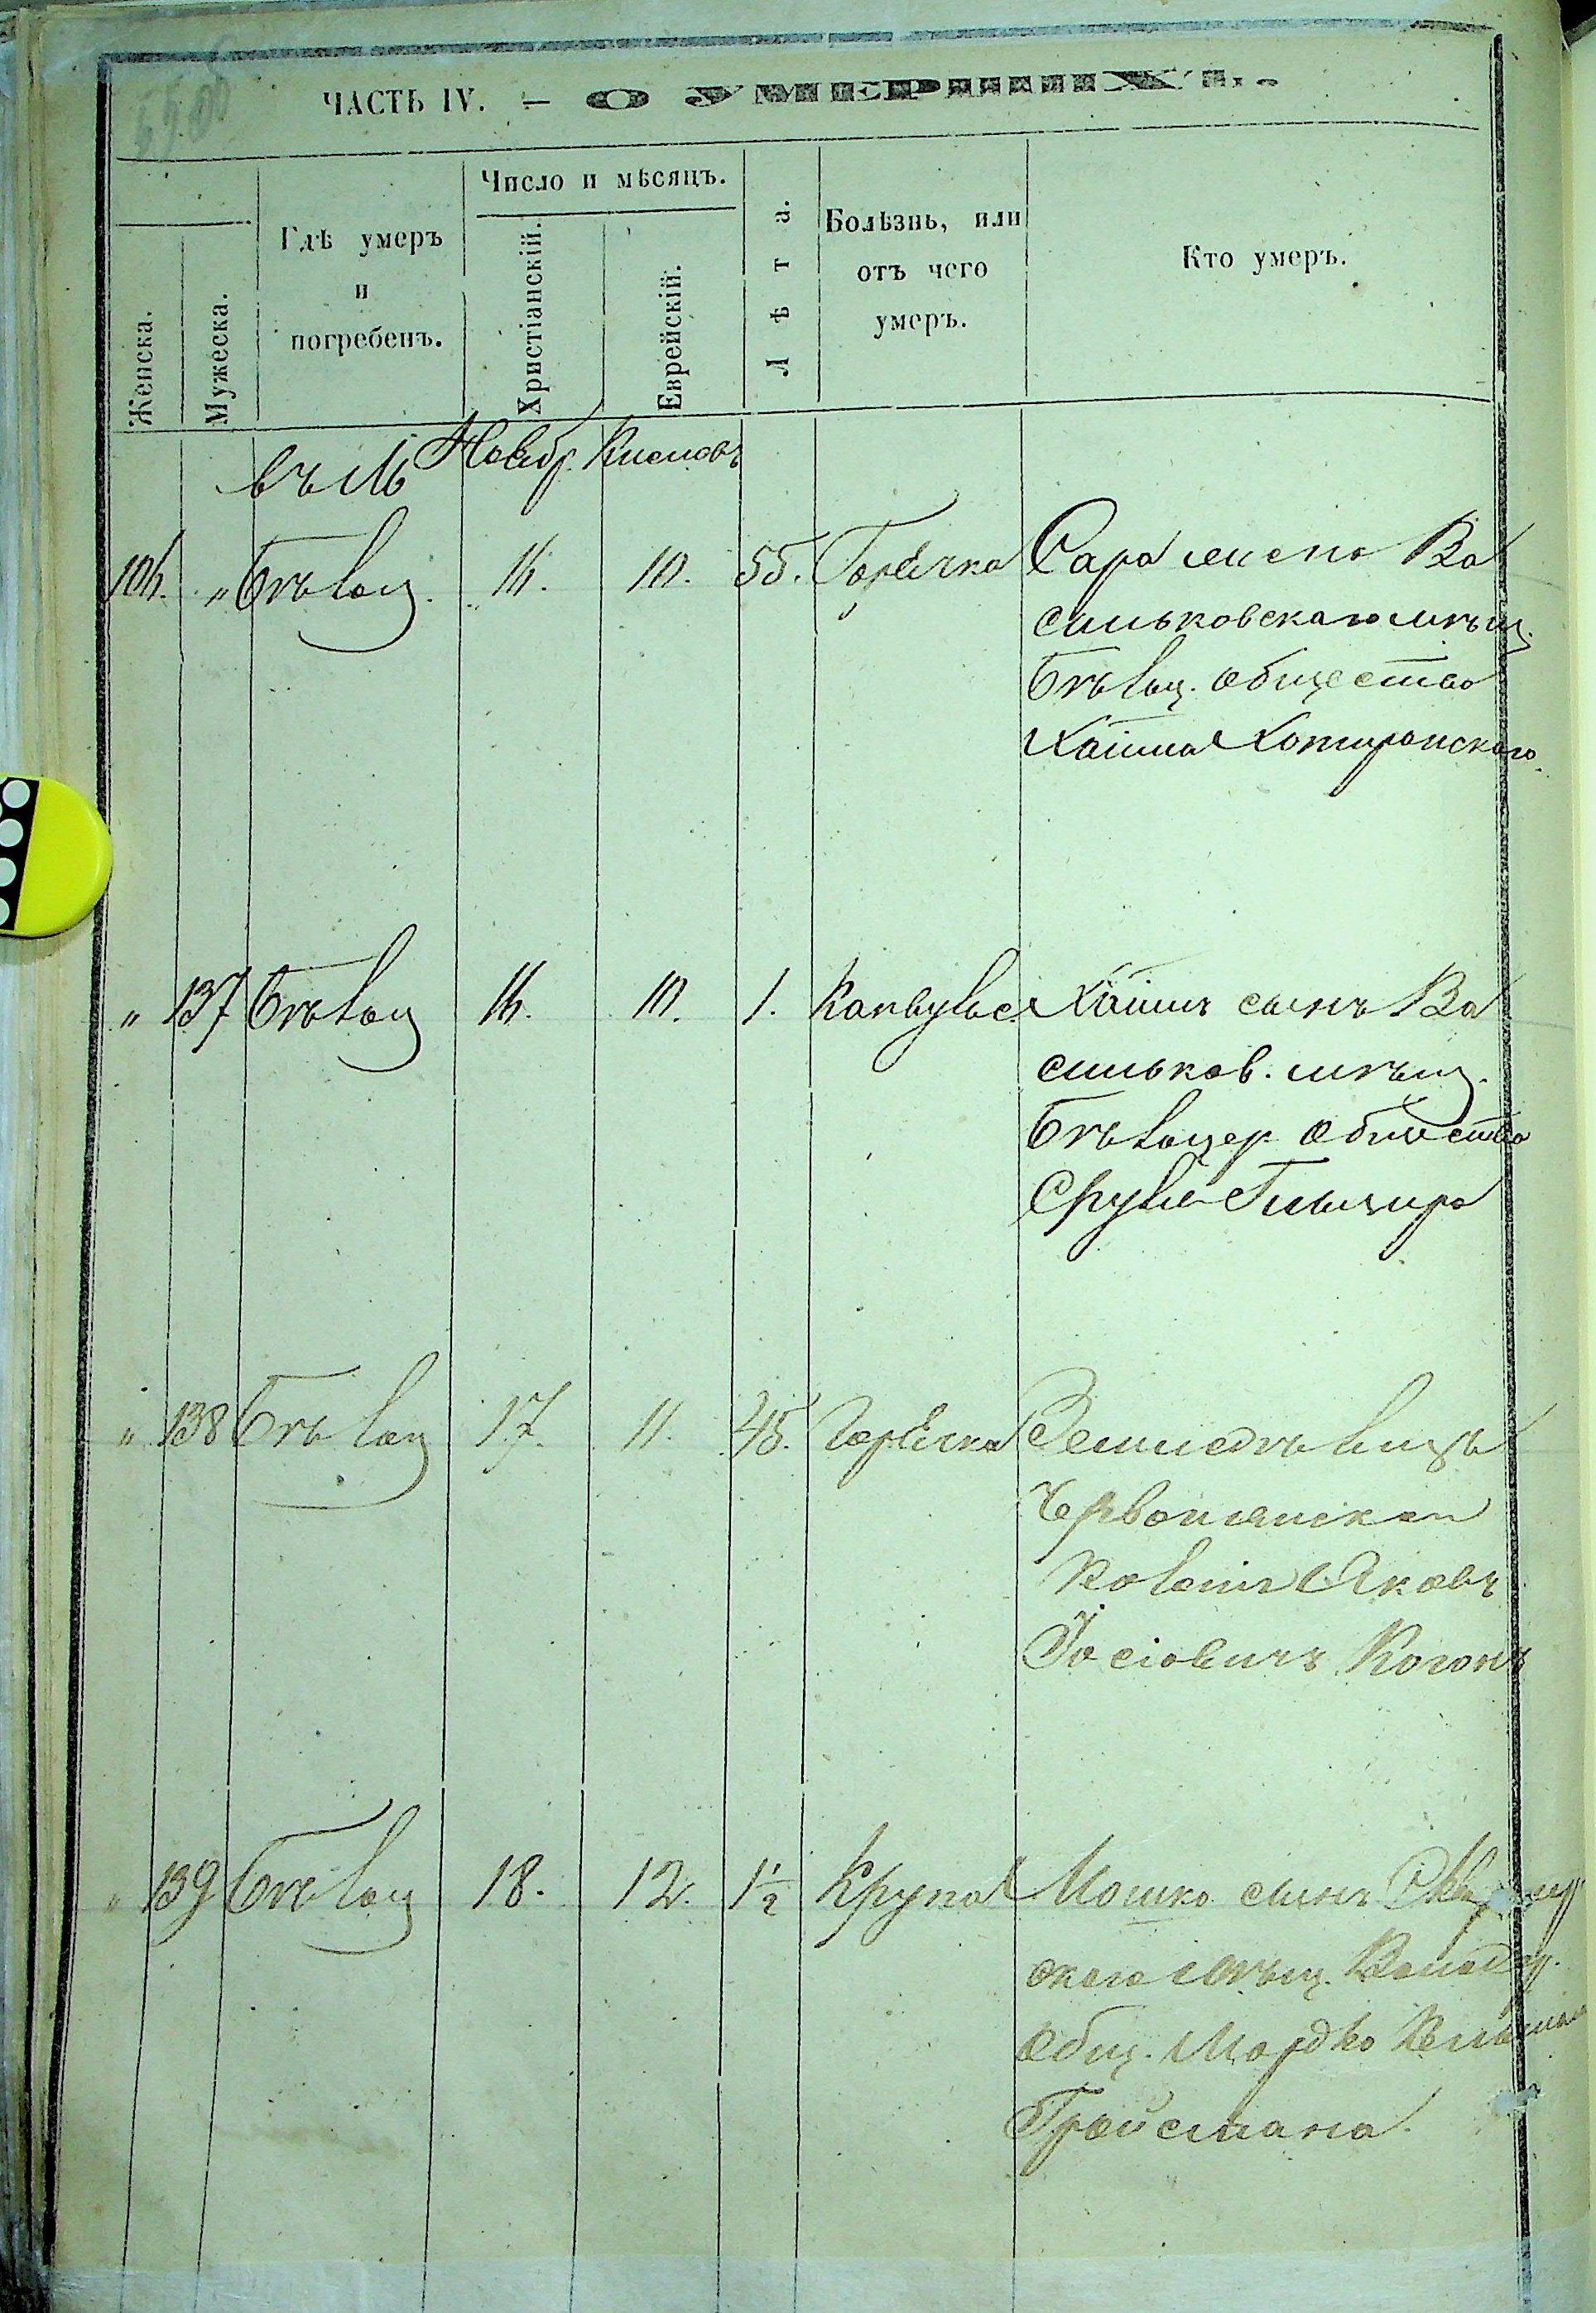 ЧАСТЬ IV. — О УМЕРШИХЪ.
Женска.
Мужеска.
Гдѣ умеръ
и
погребенъ.
Число и мѣсяцъ.
Христіанскій.
Еврейскій.
Лѣта.
Болѣзнь, или
отъ чего
умеръ.
Кто умеръ.
въ М Ноябр. Кислевъ
106. " Бѣлоц. 16. 10. 55. Горячка Сара жена Ва
сильковскаго мѣщ.
Бѣлоц. общества
Хаима
" 137 Бѣлоц 16. 10. 1. Хаимъ сынъ Ва
сильков. мѣщ.
Бѣлоцер. общества
Сруля
" 138 Бѣлоц 17. 11. 45. Горячка Земледѣлецъ
Колоніи Яковъ
Іосіовичъ Коганъ
" 139 Бѣлоц 18. 12. 1½ Крупа Мошко сынъ
скаго мѣщ.
Общ. Мордко
Гройсмана.